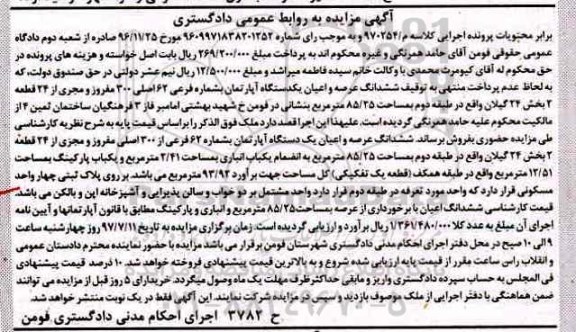 آگهی مزایده به روابط عمومی دادگستری
برابر محتویات پرونده اجرایی کلاسه م/۹۷۰۲۵۴ و به موجب رای شماره ۹۶۰۹۹۷۱۸۳۸۲۰۱۲۵۲ مورخ ۹۶/۱۱/۲۵ صادره از شعبه دوم دادگاه
عمومی حقوقی فومن آقای حامد همرنگی و غیره محکوم اند به پرداخت مبلغ ۲۶۹/۲۰۰/۰۰۰ ریال بابت اصل خواسته و هزینه های پرونده در
حق محکوم له آقای کیومرث محمدی با وکالت خانم سیده فاطمه میراشد و مبلغ ۱۲/۵۰۰/۰۰۰ ریال نیم عشر دولتی در حق صندوق دولت، که
به لحاظ عدم پرداخت منتهی به توقیف ششدانگ عرصه و اعیان یکدستگاه آپارتمان بشماره فرعی ۶۲ اصلی ۳۰۰ مفروز و مجزی از ۲۴ قطعه
۲ بخش ۲۴ گیلان واقع در طبقه دوم بمساحت ۸۵/۲۵ مترمربع بنشانی در فومن خ شهید بهشتی امامبر فاز ۳ فرهنگیان ساختمان ثمین ۴ از
مالکیت محکوم علیه حامد همرنگی گردیده است. علیهذا این اجرا قصد دارد ملک فوق الذکر را براساس قیمت پایه به شرح نظریه کارشناسی
طی مزایده حضوری بفروش برساند. ششدانگ عرصه و اعیان یک دستگاه آپارتمان بشماره ۶۲ فرعی از ۳۰۰ اصلی مفروز و مجزی از ۲۴ قطعه
۲ بخش ۲۴ گیلان واقع در طبقه دوم بمساحت ۸۵/۲۵ مترمربع به انضمام یکباب انباری بمساحت ۲/۴۱ مترمربع و یکباب پارکینگ بمساحت
۱۲/۵۱ مترمربع واقع در طبقه همکف (قطعه یک تفکیکی) کل مساحت جهت برآورد ۹۳/۹۲ مترمربع می باشد. بر روی پلاک ثبتی چهار واحد
مسکونی قرار دارد که واحد مورد تعرفه در طبقه دوم قرار دارد واحد مشتمل بر دو خواب و سالن پذیرایی و آشپزخانه اپن و بالکن می باشد.
قیمت کارشناسی ششدانگ اعیان با برخورداری از عرصه بمساحت ۸۵/۲۵ مترمربع و انباری و پارکینگ مطابق با قانون آپارتمانها و آیین نامه
اجرای آن مبلغ به عدد کلا ۱/۳۶۱/۴۸۰/۰۰۰ ریال برآورد و ارزیابی گردیده است. زمان برگزاری مزایده به تاریخ ۹۷/۷/۱۱ روز چهارشنبه ساعت
۹ الی ۱۰ صبح در محل دفتر اجرای احکام مدنی دادگستری شهرستان فومن برقرار می باشد مزایده با حضور نماینده محترم دادستان عمومی
و انقلاب راس ساعت مقرر از قیمت پایه ارزیابی شده شروع و به بالاترین قیمت پیشنهادی فروخته خواهد شد. ۱۰ درصد قیمت پیشنهادی
فی المجلس به حساب سپرده دادگستری واریز و مابقی حداکثر ظرف مهلت یک ماه وصول میگردد. خریداری ۵ روز قبل از مزایده می توانند
ضمن هماهنگی با دفتر اجرایی از ملک موصوف بازدید و سپس در مزایده شرکت نمایند. این آگهی فقط در یک نوبت منتشر خواهد شد.
ح ۳۷۸۲ اجرای احکام مدنی دادگستری فومن